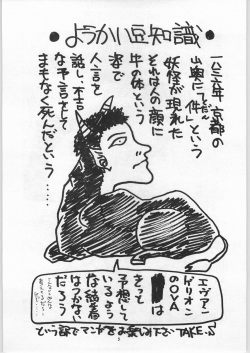 ●ようかい豆知識●
一八三六年、京都の
山奥に「件」という
くだん
妖怪が現れた
それは人の顔に
牛の体という
姿で
人言を
話し、不吉
な予言をして
まもなく死んだという……
エヴァン
ゲリオン
のOVA
は
きっと
予想して
いるような
な結着
はつかない
だろう
という訳でマンガをお楽しみ下さい TAKE.S